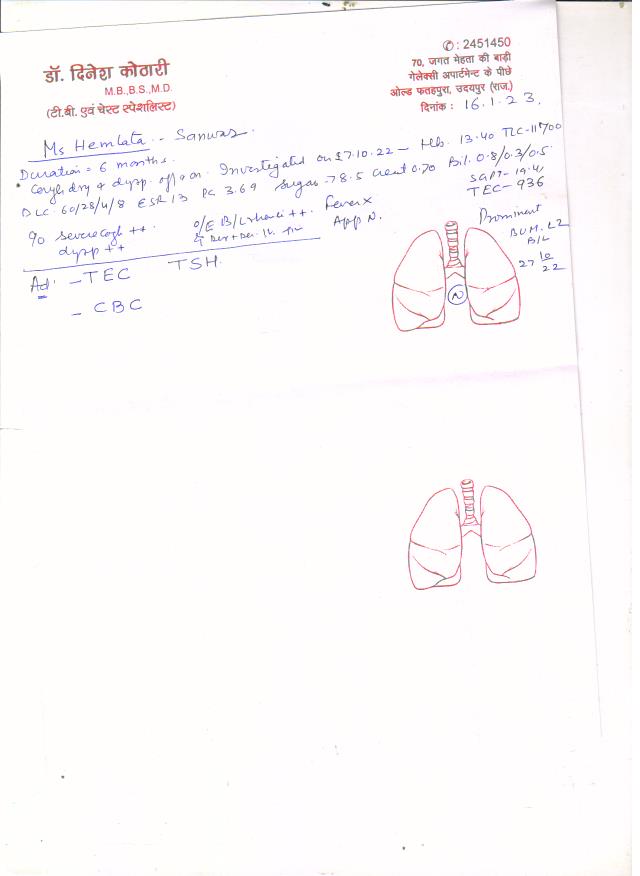 डॉ. दिनेश कोठारी
M.B.,B.S.,M.D.
(टी.बी. एवं चेस्ट स्पेशलिस्ट)
✆: 2451450
70, जगत मेहता की बाड़ी
गेलेक्सी अपार्टमेन्ट के पीछे
ओल्ड फतहपुरा, उदयपुर (राज.)
दिनांक : 16.1.23.
Ms Hemlata - Sanwar.
Duration = 6 months.
Cough dry & dysp. off & on. Investigated on 7.10.22 - Hb. 13.40 TLC-11700
DLC 60/28/4/8 ESR 13 PC 3.69 Sugar 78.5 Creat 0.70 Bil. 0.8/0.3/0.5
SGPT- 19.4
TEC-936
C/o severe cough ++
dysp ++
O/E B/L rhonchi ++.
Fever x
App N.
Prominent
BVM. L2
B/L
27 10 22
N
Ad: - TEC TSH.
- CBC